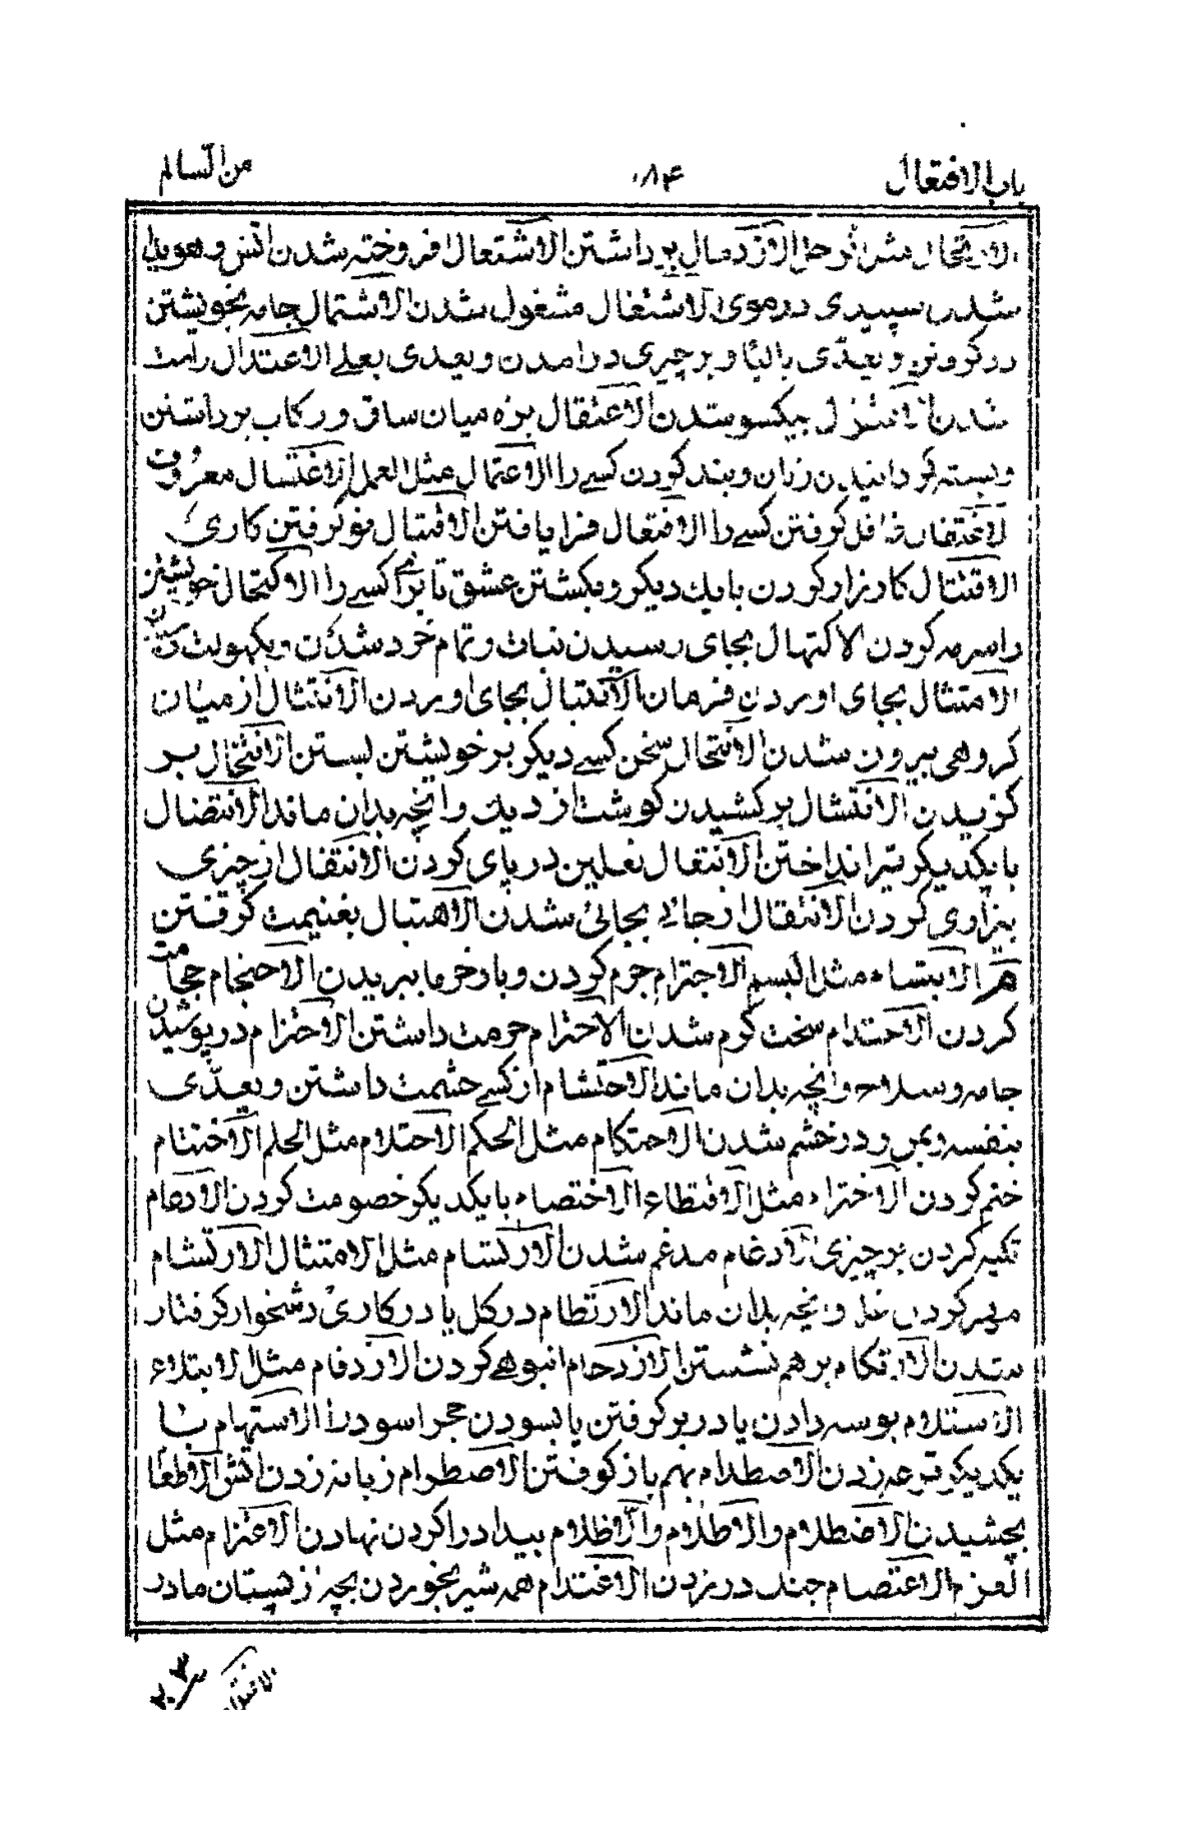 باب الافتعال ۱۸۴ من السالم
الارتحال مثل الرحل الازدمال برداشتن الاشتعال افروخته شدن اتش و
شدن سپیدی درموی الاشتغال مشغول شدن الاشتمال جامه بخویشتن
و یعدّی بالبا و بر چیزی درامدن و یعدی بعلے الاعتدال راست
شدن بیکسو شدن الاعتقال بزه میان ساق و رکاب برداشتن
و بسته کردانیدن زبان و بند کردن کسے را الاعتمال مثل العمل الاغتسال معروف
کرفتن کسے را الافتعال فرا یافتن الاقتبال نو کرفتن کاری
الاقتتال کارزار کردن با یك دیکر و بکشتن عشق کسے را الاکتحال خویشتن
را سرمه کردن الاکتهال بجای رسیدن نبات و تمام خرد شدن و بکهولت
الامتثال بجای اوردن فرمان الانتبال بجای اوردن الانتثال از میان
کروهی بیرون شدن الانتحال سخن کسے دیکر بر خویشتن بستن الانتخال بر
کزیدن الانتشال برکشیدن کوشت از دیك و انچه بدان ماند الانتضال
با یکدیکر تیر انداختن الانتعال نعلین در پای کردن الانتفال از چیزی
بیزاری کردن الانتقال از جائے بجائی شدن الاهتبال بغنیمت کرفتن
م الابتسام مثل البسم الاجترام جرم کردن و بار خرما ببریدن الاحتجام حجامت
کردن الاحتدام سخت کرم شدن الاحترام حرمت داشتن الاحتزام در پوشیدن
جامه و سلاح و انچه بدان ماند الاحتشام از کسے حشمت داشتن و یعدّی
بنفسه و بمن و در خشم شدن الاحتکام مثل الحکم الاحتلام مثل الحلم الاختتام
ختم کردن الاخترام مثل الاقتطاع الاختصام با یکدیکر خصومت کردن الادعام
تکیه کردن بر چیزی الادغام مدغم شدن الارتسام مثل الامتثال الارتشام
مهر کردن غله و انچه بدان ماند الارتطام در کل یا در کاری دشخوار کرفتار
شدن الارتکام بر هم نشستن الازدحام انبوهی کردن الازدقام مثل الابتلاع
الاستلام بوسه دادن یا در بر کرفتن یا بسودن حجر اسود را الاستهام با
یکدیکر قرعه زدن الاصطدام بهم باز کوفتن الاضطرام زبانه زدن اتش الاطعام
بچشیدن الاضطلام والاطلام والاظلام بیداد را کردن نهادن الاعتزام مثل
العزم الاعتصام چنك در زدن الاغتذام همه شیر بخوردن بچه از پستان مادر